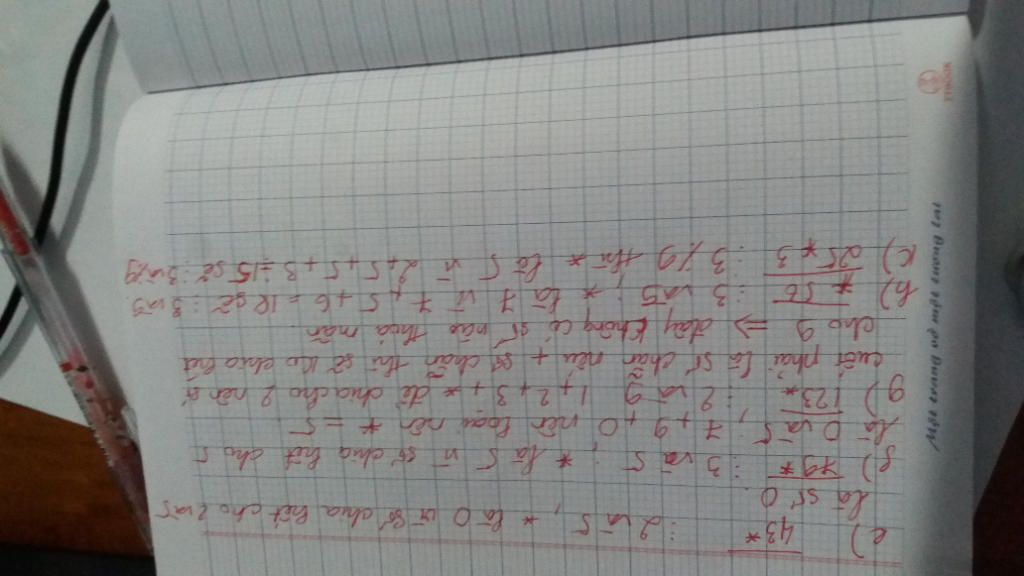 e) 43* : 2 và 5, * là 0 vì số chia hết cho 2 và 5
là số 0
f) 79* : 3 và 5 ; * là 5 vì số chia hết cho 5
là 0 và 5, 7+9+0 nên loại nên * = 5
g) 123* : 2 và 9 1+2+3+* để chia cho 2 nên số
cuối phải là số chẵn nếu + số chẵn thì sẽ ko chia hết
cho 9 => đây không có số nào thỏa mãn
h) *56 : 3 và 9 ; * là 7 vì 7+5+6 = 18 sẽ : 3 và 9
k) 25*3 : 3 và 9 thì * là 5 vì 2+5+5+3 = 15 sẽ : 3 và 9